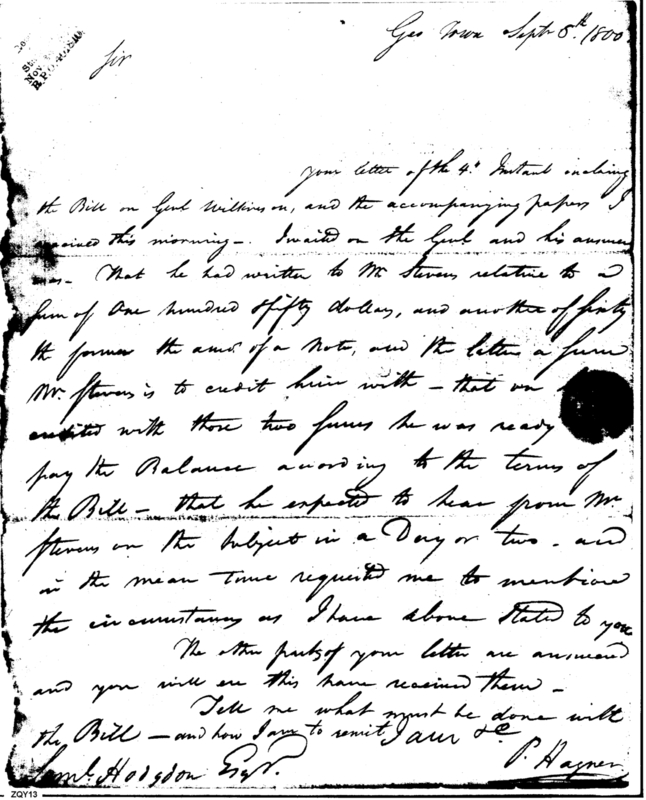 Geo Town Septr 8th. 1800
Sir
your letter of the 4th. Instant enclosing
the Bill on Genl Wilkinson, and the accompanying papers I
received this morning -. I waited on the Genl and his answer
was - that he had written to Mr Stevens relative to a
Sum of One hundred & fifty dollars, and another of sixty
the former the amt. of a Note, and the latter a sum
Mr. Stevens is to credit him with - that on
credited with those two sums he was ready
pay the Balance according to the terms of
the Bill - that he expected to hear from Mr
Stevens on the Subject in a Day or two - and
in the mean time requested me to mention
the circumstances as I have above stated to you
The other parts of your letter are answered
and you will ere this have received them -
Tell me what must be done with
the Bill - and how I am to remit I am &c
Saml. Hodgdon Esqr.
P. Hagner
ZQY13